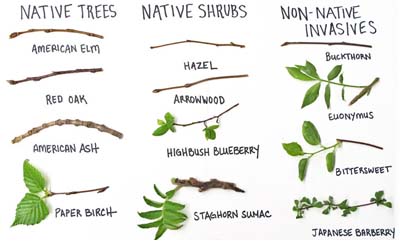 NATIVE TREES
AMERICAN ELM
RED OAK
AMERICAN ASH
PAPER BIRCH
NATIVE SHRUBS
HAZEL
ARROWWOOD
HIGHBUSH BLUEBERRY
STAGHORN SUMAC
NON-NATIVE
INVASIVES
BUCKTHORN
EUONYMUS
BITTERSWEET
JAPANESE BARBERRY